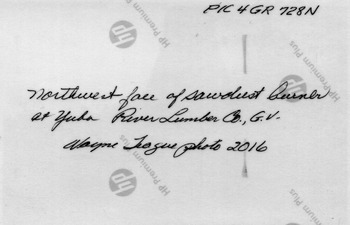 PIC 4 GR 728N
Northwest face of sawdust burner
at Yuba River Lumber Co., G.V.
Wayne Teague photo 2016
hp HP Premium Plus
hp HP Premium Plus
hp HP Premium Plus
HP Premium Plus